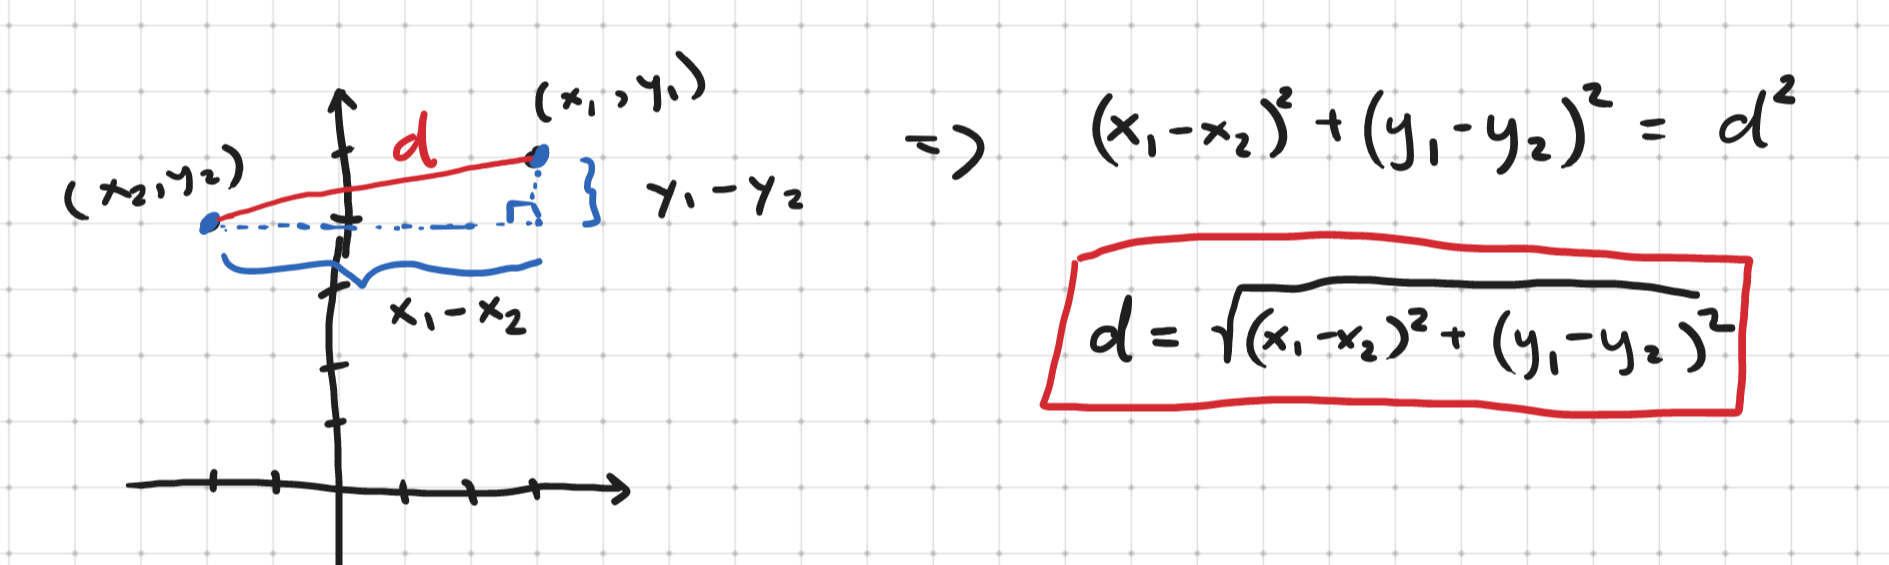 (x₁, y₁)
d
(x₂, y₂)
y₁ - y₂
x₁ - x₂
=> (x₁ - x₂)² + (y₁ - y₂)² = d²
d = √((x₁ - x₂)² + (y₁ - y₂)²)